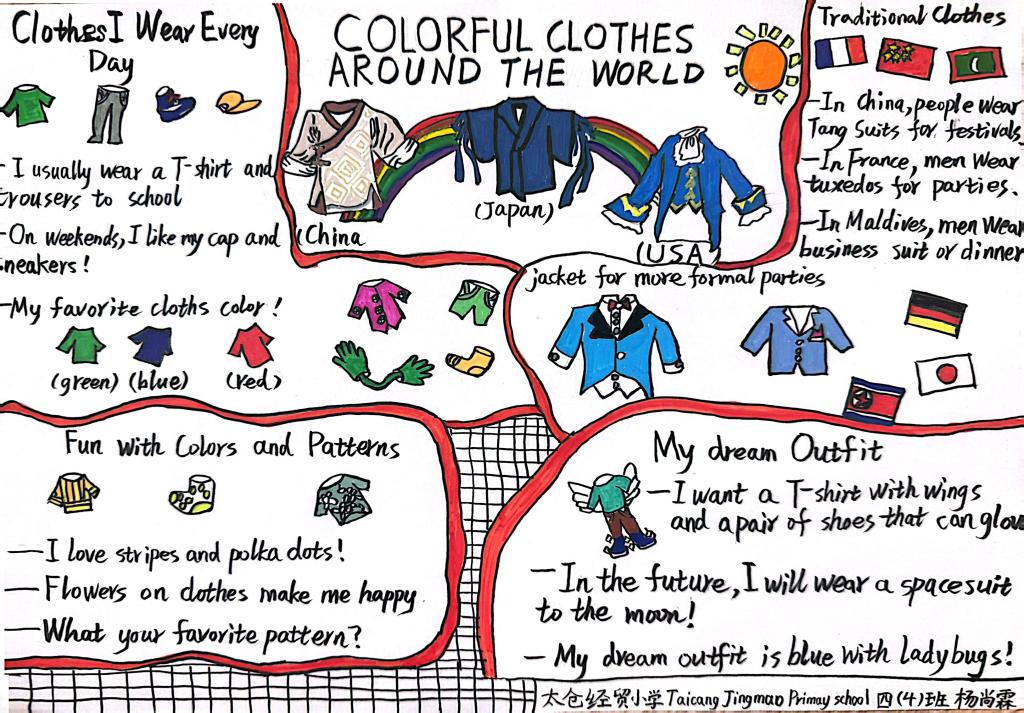 Clothes I Wear Every
Day
- I usually wear a T-shirt and
trousers to school
- On weekends, I like my cap and
sneakers!
- My favorite cloths color!
(green) (blue) (red)
COLORFUL CLOTHES
AROUND THE WORLD
(China
(Japan)
(USA)
Traditional Clothes
- In China, people wear
Tang Suits for festivals
- In France, men wear
tuxedos for parties.
- In Maldives, men wear
business suit or dinner
jacket for more formal parties
Fun with Colors and Patterns
— I love stripes and polka dots!
— Flowers on clothes make me happy.
— What your favorite pattern?
My dream Outfit
— I want a T-shirt with wings
and a pair of shoes that can glow
— In the future, I will wear a spacesuit
to the moon!
— My dream outfit is blue with ladybugs!
太仓经贸小学 Taicang Jingmao Primay school 四(4)班 杨尚霖